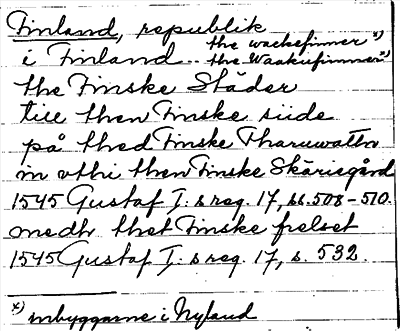 Finland, republik
the wackefinner *)
i Finland.. the Waakiifinner *)
the Finske Städer
till then Finske siide
på thed Finske Tharuwattn
in uthi then Finske Skäriegård
1545 Gustaf I:s reg. 17, ss. 508-510.
medh thet Finske frelset
1545 Gustaf I:s reg. 17, s. 532.
*) inbyggarne i Nyland